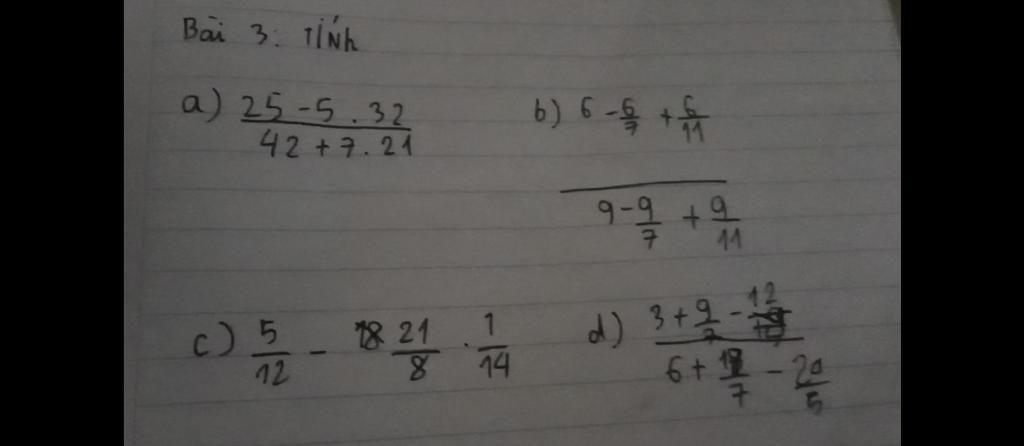 Bài 3: Tính
a) (25 - 5 . 32) / (42 + 7 . 21)
b) (6 - 6/7 + 6/11) / (9 - 9/7 + 9/11)
c) 5/12 - 21/8 . 1/14
d) (3 + 9/7 - 12/) / (6 + /7 - 20/5)